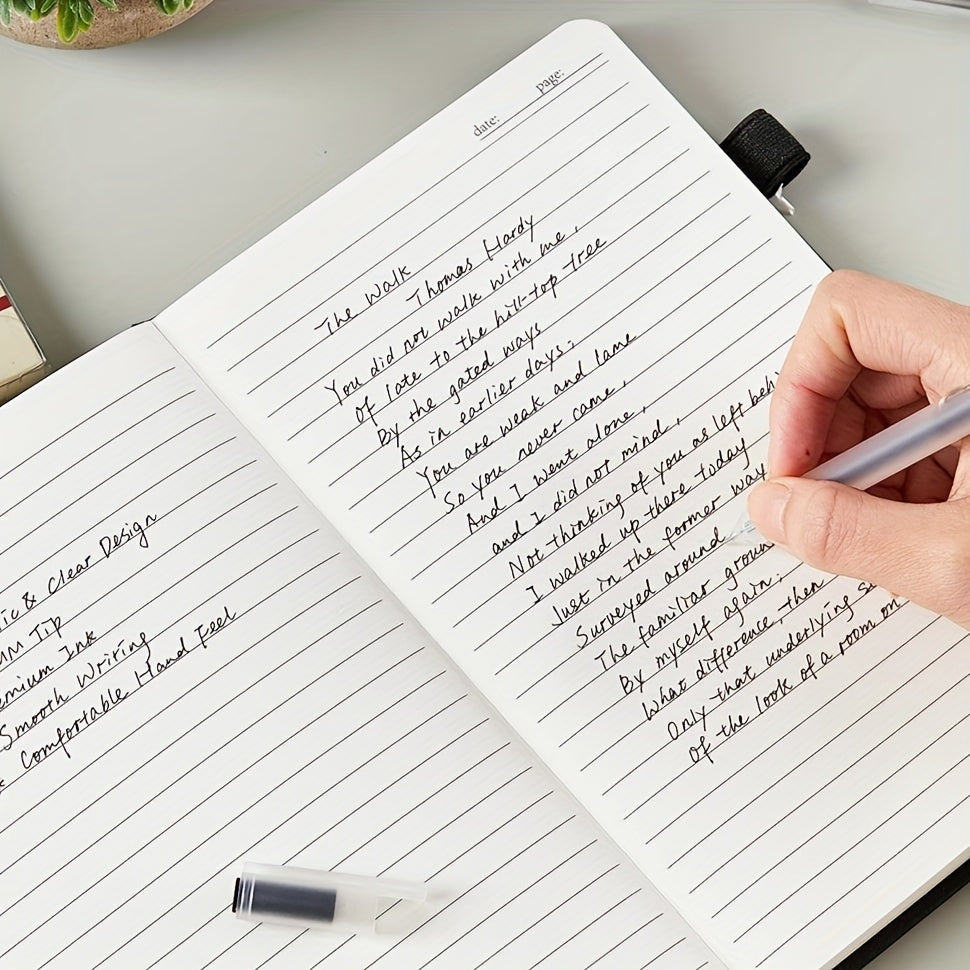 Clear Design
Tip
Ink
Smooth Writing
Comfortable Hand Feel
page:
date:
The Walk
Thomas Hardy
You did not walk with me,
Of late to the hill-top tree
By the gated ways
As in earlier days;
You are weak and lame
So you never came,
And I went alone,
and I did not mind,
Not thinking of you as left behi
I walked up there today
Just in the former way
Surveyed around
The familiar groun
By myself again;
What difference, then
Only that underlying se
Of the look of a room on